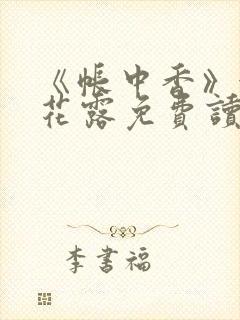 《帐中香》
花露免費讀
李書福